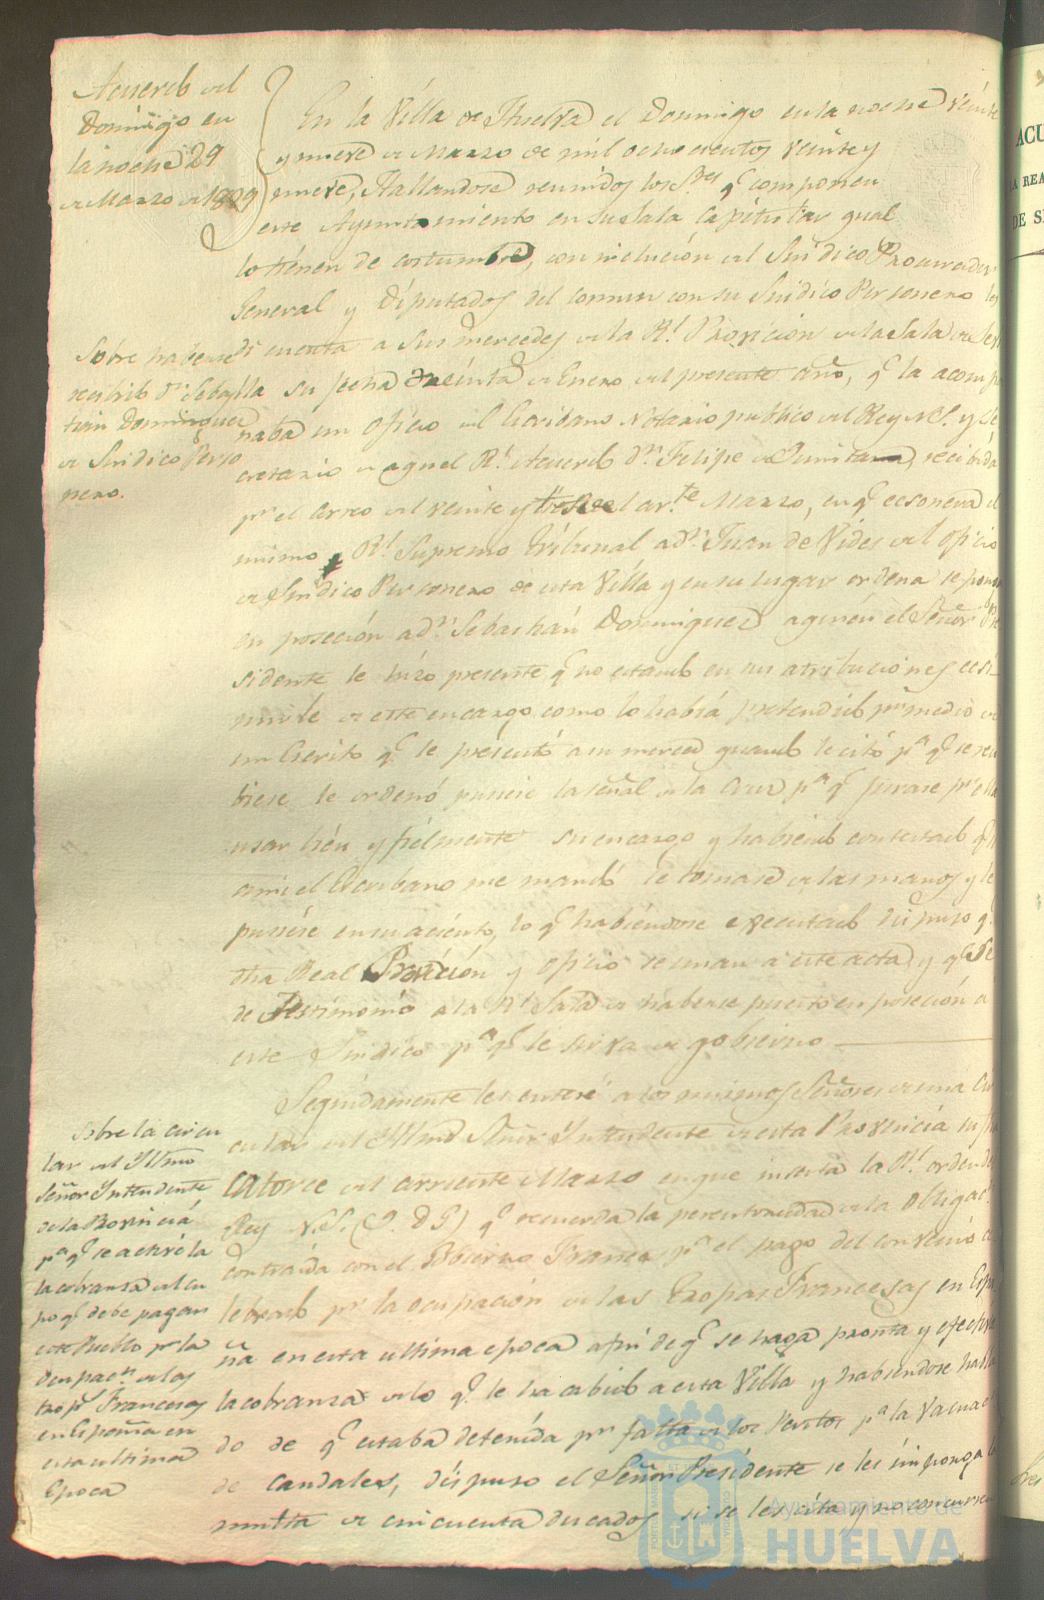 Acuerdo del
Domingo en
la noche 29
de Marzo de 1829
En la Villa de Huelva el Domingo en la noche veinte
y nueve de Marzo de mil ochocientos veinte y
nueve, Hallandose reunidos los S.res q.e componen
este Ayuntamiento en su Sala Capitular qual
lo tienen de costumbre, con inclución del Sindico Procurador
General y Diputados del comun con su Sindico Personero les
Sobre haberse
recibido D.n Sebas
tian Dominguez
de Sindico Perso
nero.
di cuenta a Sus mercedes de la R.l Provicion de la Sala de Sevi
lla su fecha treinta de Enero del presente año, q.e la acompa
ñaba un Oficio del Escribano Notario publico del Rey N.S. y Se
cretario de aquel R.l Acuerdo D.n Felipe de Quintana, recibida
p.r el correo del veinte y tres del cor.te Marzo, en q.e ecsonera el
mismo R.l Supremo Tribunal a D.n Juan de Vides del oficio
de Sindico Personero de esta Villa y en su lugar ordena se ponga
en poseción a D.n Sebastián Dominguez a quien el Señor Pre
sidente le hizo presente q.e no estando en sus atribuciones ecsi
mirle de este encargo como lo había pretendido p.r medio de
un Escrito q.e le presentó a su merced quando le citó p.a q.e se reci
biese le ordenó pusiese la señal de la Cruz p.a q.e jurase p.r ella
usar bién y fielmente su encargo y habiendo contestado q.e
ami el Escribano me mandó le tomase de las manos y le
pusiése en su aciento, lo q.e habiéndose executado dispuso q.e
dha Real Provición y oficio se unan a este acta y q.e se
dé Testimonio a la R.l Sala de haberse puesto en poseción a
este Sindico p.a q.e le sirva de gobierno
Sobre la circu
lar del Yltmo
Señor Yntendente
de la Provinciá
p.a q.e se active la
la cobranza del cu
po q.e debe pagar
este Pueblo p.r la
Ocupac.n de las
trop.s Francesas
en España en
esta ultima
Epoca
Seguidamente les enteré a los mismos Señores de una Cir
cular del Yltmo Señor Yntendente de esta Provinciá su fha
catorce del corriente Marzo en que inserta la R.l orden del
Rey N.S. (Q. D. G.) q.e recuerda la perentoriedad de la obligaci
contraida con el Gobierno Frances p.a el pago del convenio ce
lebrado p.r la ocupación de las Tropas Francesas en Espa
ña en esta ultima epoca a fin de q.e se haga pronta y efectiva
la cobranza de lo q.e le ha cabido a esta Villa y habiendose habla
do de q.e estaba detenida p.r falta de los Peritos p.a la
de caudales, dispuso el Señor Presidente se les imponga la
multa de cincuenta ducados si se les cita y no concurren
Ayuntamiento de
HUELVA
ACU
LA REA
DE S